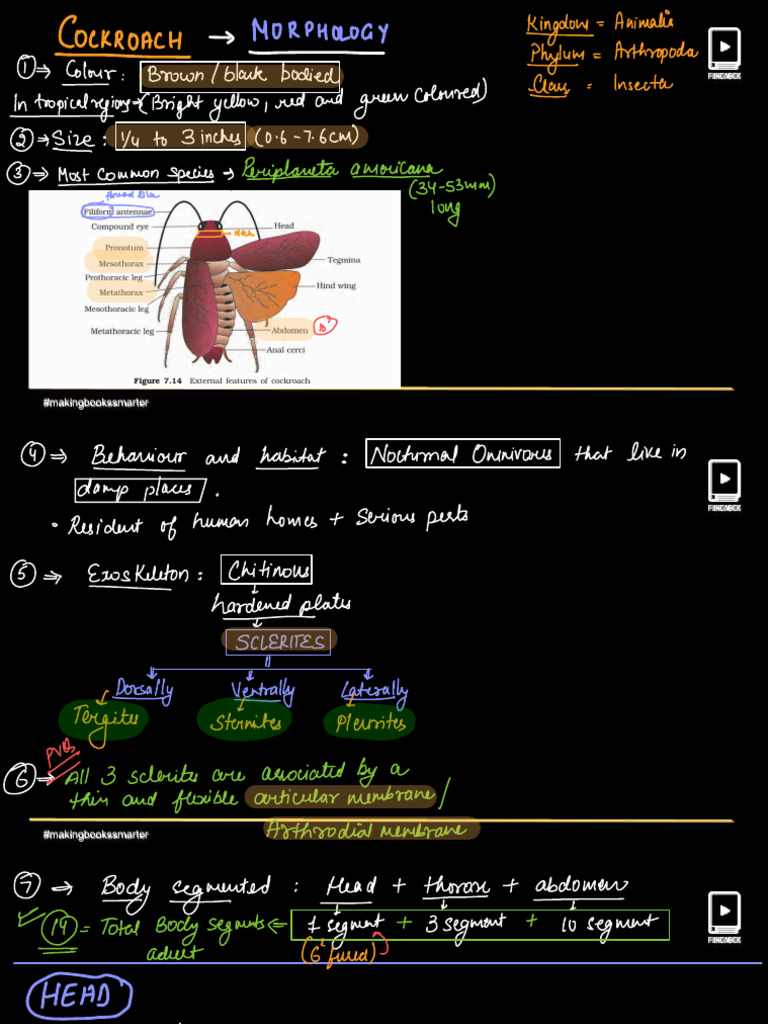 COCKROACH → MORPHOLOGY
Kingdom = Animalia
Phylum = Arthropoda
Class = Insecta
① → Colour : Brown / black bodied
In tropical regions → (Bright yellow, red and green coloured)
② → Size : 1/4 to 3 inches (0.6 - 7.6 cm)
③ → Most Common Species → Periplaneta americana
(34-53 mm) long
thread like
Filiform antennae
Compound eye
Head
Neck
Pronotum
Mesothorax
Prothoracic leg
Metathorax
Mesothoracic leg
Metathoracic leg
Tegmina
Hind wing
Abdomen 10
Anal cerci
Figure 7.14 External features of cockroach
#makingbookssmarter
④ ⇒ Behaviour and habitat : Nocturnal Omnivorous that live in
damp places .
• Resident of human homes + Serious pests
⑤ ⇒ Exoskeleton : Chitinous
hardened plates
SCLERITES
Dorsally Ventrally Laterally
Tergites Sternites Pleurites
PYQs
⑥ → All 3 sclerites are associated by a
thin and flexible articular membrane /
Arthrodial membrane
#makingbookssmarter
⑦ ⇒ Body segmented : Head + thorax + abdomen
14 = Total Body segments ⇐ 1 segment + 3 segment + 10 segment
adult (6 fused)
HEAD